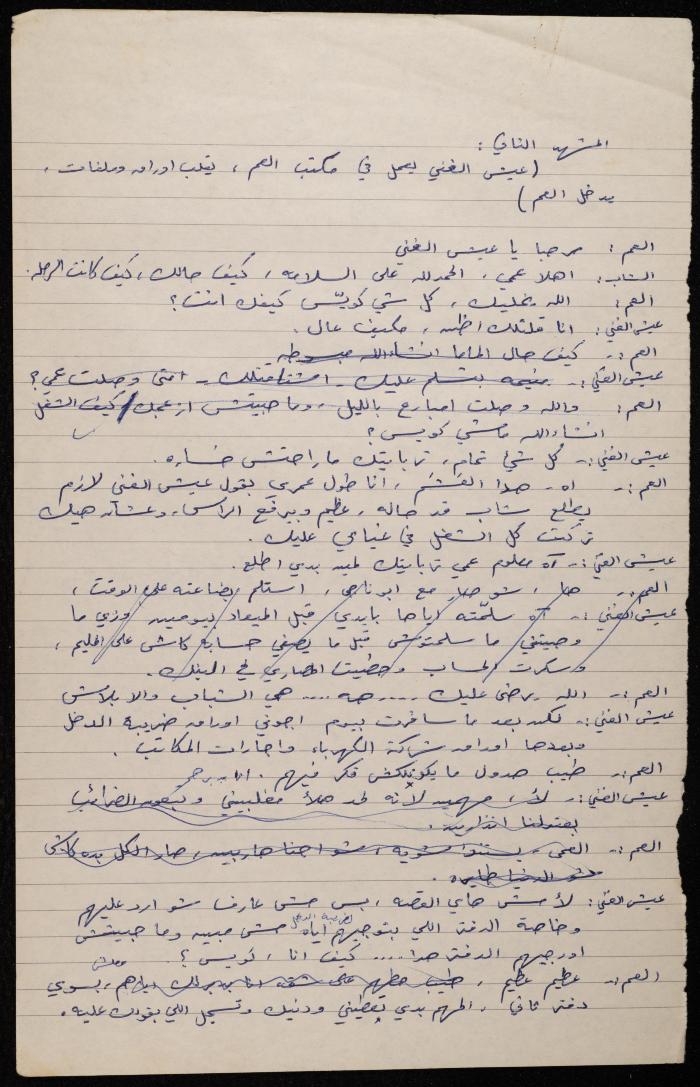 المشهد الثاني:
(عيش الغني يعمل في مكتب العم، يقلب اوراق وملفات،
يدخل العم)
العم: مرحبا يا عيش الغني
الشاب: اهلا عمي، الحمدلله على السلامه، كيف حالك، كيف كانت الرحله.
العم: الله يخليك، كل شي كويّس كيفك انت؟
عيش الغني: انا قلتلك اظن، مكيف عال.
العم:- كيف حال الماما انشاءالله مبسوطه
عيش الغني:- منيحه بتسلم عليك - اشتاقتلك - امتى وصلت عمي؟
العم: والله وصلت امبارح بالليل، وما حبيتش ازعجك / كيف الشغل
انشاءالله ماشي كويس؟
عيش الغني:- كل شيء تمام، تربايتك ما راحتش خساره.
العم:- اه، هذا العشم، انا طول عمري بقول عيش الغني لازم
يطلع شاب قد حاله، عظيم وبيرفع الراس، وعشان هيك
تركت كل الشغل في غيابي عليك.
عيش الغني:- آه معلوم عمي تربايتك لمين بدي اطلع.
العم:- ها، شو صار مع ابو ناجي، استلم بضاعته على الوقت،
عيش الغني:- آه سلمّته اياها بايدي قبل الميعاد بيومين وزي ما
وصيتني ما سلمتوش قبل ما يصفي حسابه كاش على اقليم،
وسكرت الحساب وحطيت المصاري في البنك.
العم:- الله يرضى عليك ..... هه .... هي الشباب والا بلاش
عيش الغني:- لكن بعد ما سافرت بيوم اجوني اوراق ضريبة الدخل
وبعدها اوراق شركة الكهرباء واجارات المكاتب.
العم:- طيب هدول ما يكونلكش فكر فيهم.
عيش الغني:- لأ، مهمين لأنه لحد هلأ مغلبيني وبتوع الضرائب
بعتولنا انذارين.
العم:- العمى، يستنوا شويه، شو احنا هاربين، صار الكل بده كاش
شو الدنيا طايره.
عيش الغني: لأ مش هاي القصه، بس مش عارف شو ارد عليهم
وخاصة الدفتر اللي بتوجيهم اياه لضريبة الدخل مش مبين وما حبيتش
اورجيهم الدفتر هدا .... كيف انا، كويس؟
العم:- عظيم عظيم، طيب حطهم على شقه انا بدبرلك اياهم، بسوي معلش
دفتر ثاني، المهم بدي تعطيني ودنيك وتسجل اللي بقولك عليه.